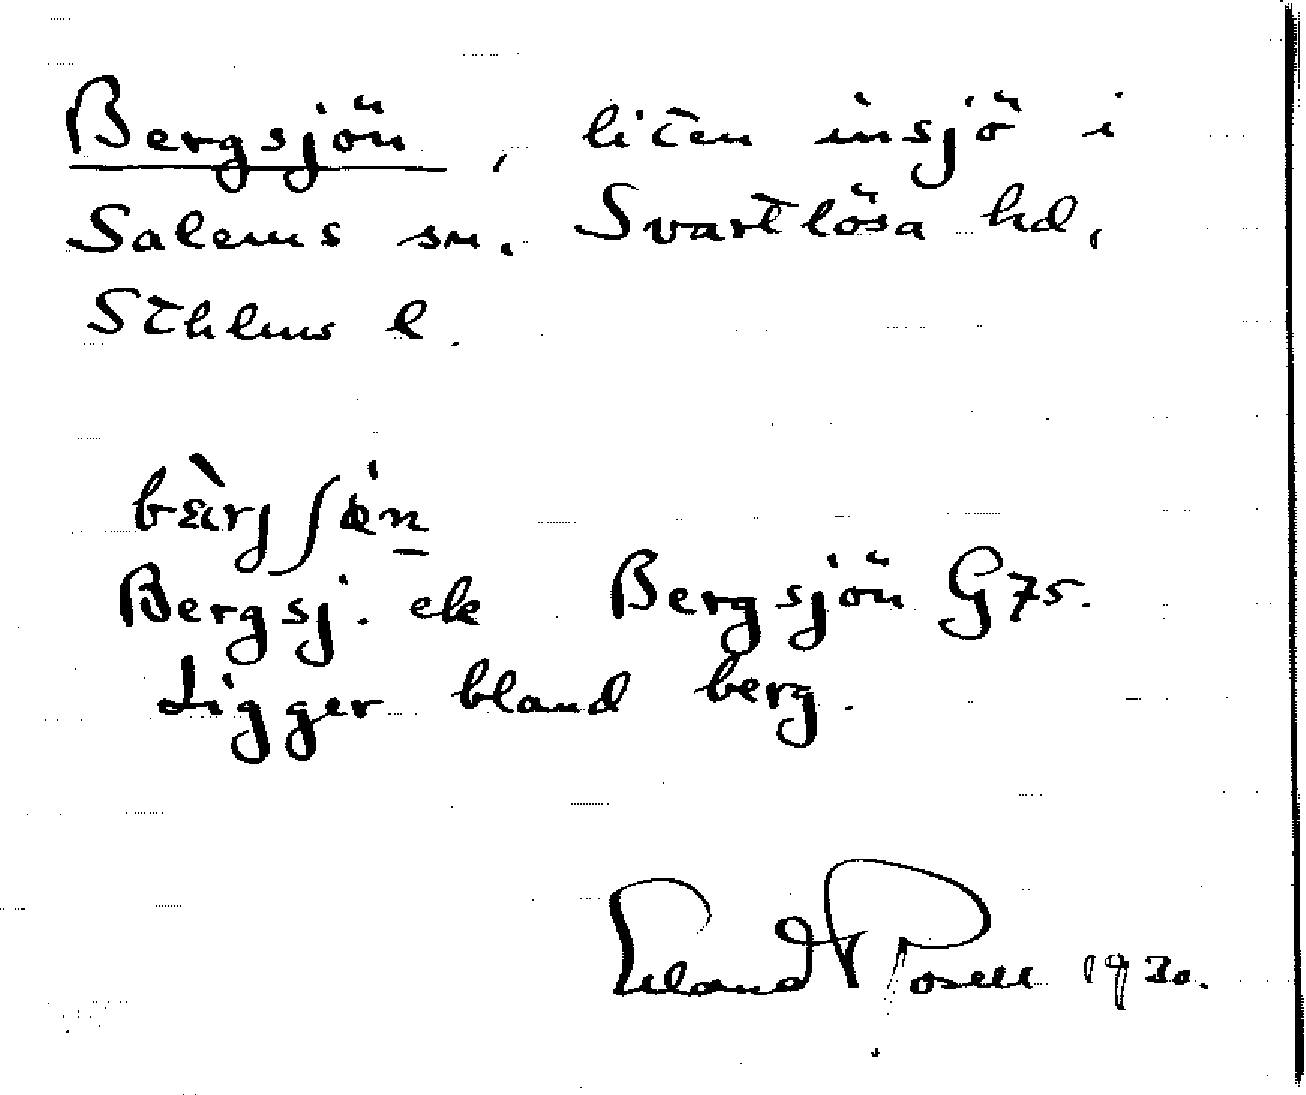 Bergsjön, liten insjö i
Salems sn. Svartlösa hd,
Sthlms l.
Bergsj. ek Bergsjön G75.
Ligger bland berg.
Erland Rosell 1930.